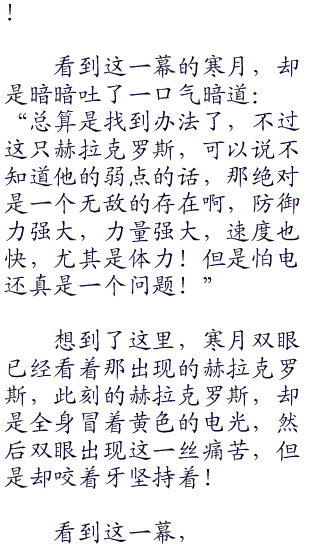 ！
看到这一幕的寒月，却
是暗暗吐了一口气暗道：
“总算是找到办法了，不过
这只赫拉克罗斯，可以说不
知道他的弱点的话，那绝对
是一个无敌的存在啊，防御
力强大，力量强大，速度也
快，尤其是体力！但是怕电
还真是一个问题！”
想到了这里，寒月双眼
已经看着那出现的赫拉克罗
斯，此刻的赫拉克罗斯，却
是全身冒着黄色的电光，然
后双眼出现这一丝痛苦，但
是却咬着牙坚持着！
看到这一幕，